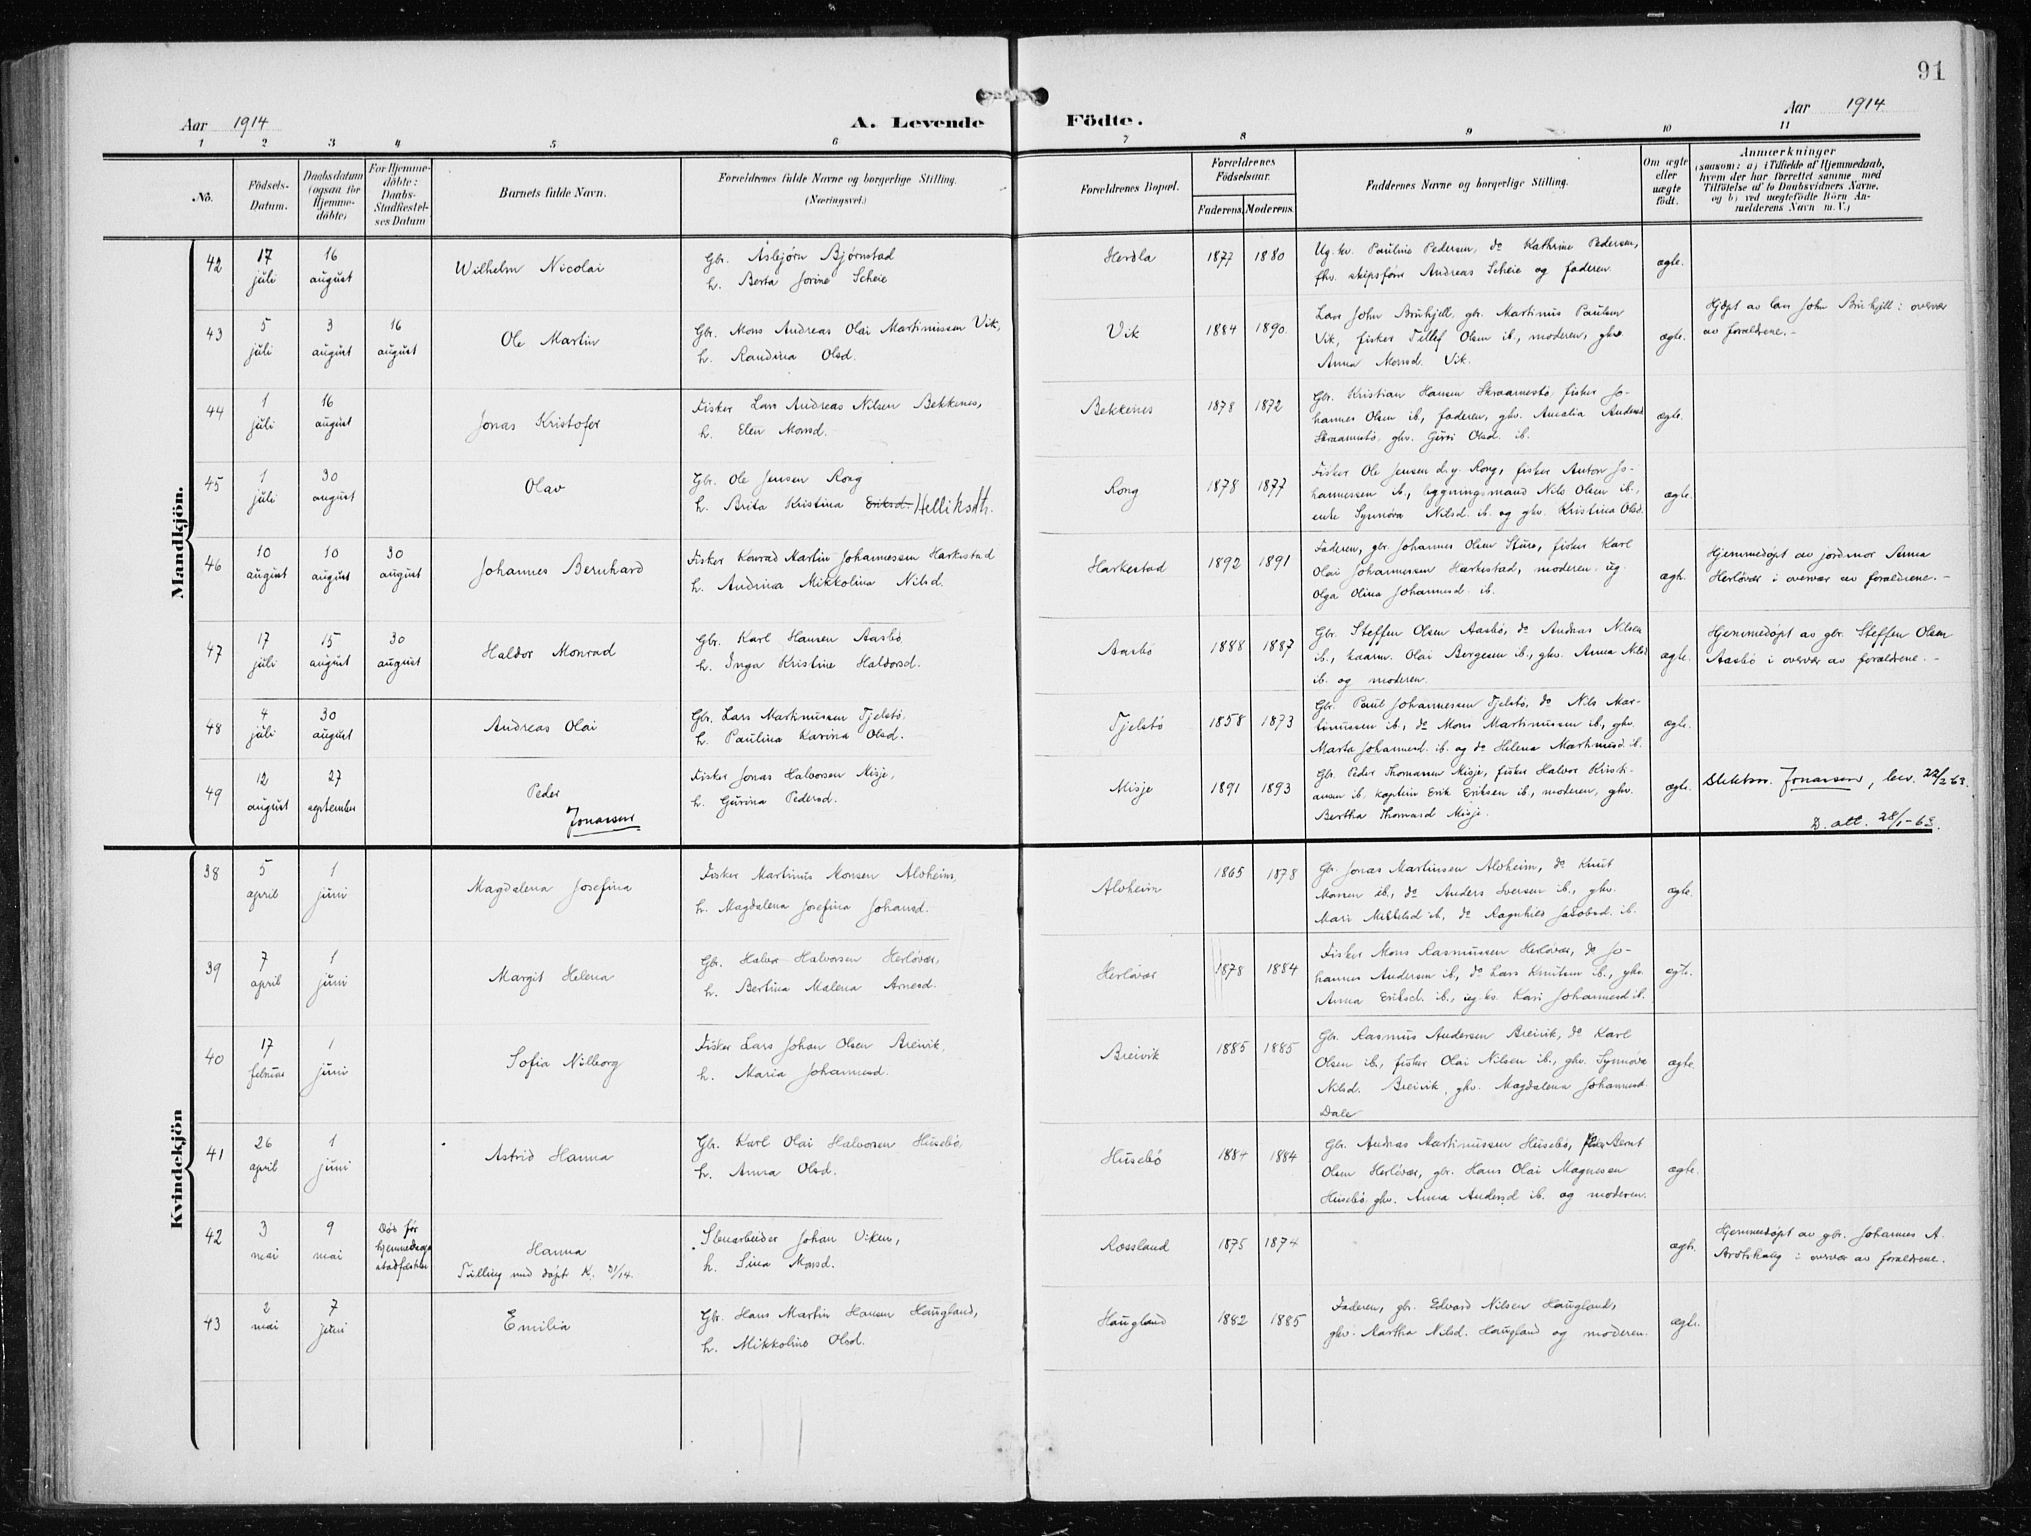 91
Aar 1914
A. Levende Födte.
Aar 1914
1 2 3 4 5 6 7 8 9 10 11
No.
Födsels-Datum.
Daabsdatum (ogsaa for Hjemme-döbte)
For Hjemme-döbte: Daabs-Stadfæstel-ses Datum
Barnets fulde Navn.
Forældrenes fulde Navne og borgerlige Stilling.
(Næringsvei.)
Forældrenes Bopæl.
Forældrenes Födselsaar.
Faderens. Moderens.
Faddernes Navne og borgerlige Stilling.
Om ægte eller uægte födt.
Anmærkninger
(saasom: a) i Tilfælde af Hjemmedaab,
hvem der har forrettet samme med
Tilföielse af to Daabsvidners Navne,
og b) ved uægtefödte Börn An-
melderens Navn m. V.)
Mandkjön.
42 17 juli 16 august Wilhelm Nicolai
Gbr. Asbjørn Bjørnstad
h. Berta Jorine Scheie
Herdla 1877 1880
Ug. kv. Pauline Pedersen, do Kathrine Pedersen,
fhv. skipsfører Andreas Scheie og faderen.
ægte.
43 5 juli 3 august 16 august Ole Martin
Gbr. Mons Andreas Olai Martinussen Vik,
h. Randina Olsd.
Vik 1884 1890
Lars John Bruhjell, gbr. Martinus Paulsen
Vik, fisker Tillef Olsen ib., moderen, ghv.
Anna Monsd. Vik.
ægte.
Hjdøpt av Lars John Bruhjell i overvær
av forældrene.-
44 1 juli 16 august Jonas Kristofer
Fisker Lars Andreas Nilsen Bekkenes,
h. Elen Monsd.
Bekkenes 1878 1872
Gbr. Kristian Hansen Skraamestø, fisker Jo-
hannes Olsen ib., faderen, ghv. Amalia Andersd
Skraamestø, ghv. Guri Olsd. ib.
ægte.
45 1 juli 30 august Olav
Gbr. Ole Jensen Rong
h. Brita Kristina Eriksd. Helliksdtr.
Rong 1878 1877
Fisker Ole Jensen d.y. Rong, fisker Anton Jo-
hannessen ib., lægningsmand Nils Olsen ib.,
enke Synnøva Nilsd. ib. og ghv. Kristina Olsd.
ægte.
46 10 august 10 august 30 august Johannes Bernhard
Fisker Konrad Martin Johannessen Harkestad
h. Andrina Mikkolina Nilsd.
Harkestad 1892 1891
Faderen, gbr. Johannes Olsen Sture, fisker Karl
Olai Johannessen Harkestad, moderen, ug.
Olga Olina Johannesd. ib.
ægte.
Hjemmedøpt av jordmor Anna
Herløvær i overvær av forældrene.-
47 17 juli 15 august 30 august Haldor Monrad
Gbr. Karl Hansen Aasbø
h. Inga Kristine Haldorsd.
Aasbø 1888 1887
Gbr. Steffen Olsen Aasbø, do Andreas Nilsen
ib., kaarm. Olai Børgesen ib., ghv. Anna Nilsd
ib. og moderen.
ægte.
Hjemmedøpt av gbr. Steffen Olsen
Aasbø i overvær av forældrene.-
48 4 juli 30 august Andreas Olai
Gbr. Lars Martinussen Tjelstø,
h. Paulina Karina Olsd.
Tjelstø 1858 1873
Gbr. Paul Johannessen Tjelstø, do Nils Mar-
tinussen ib., do Mons Martinussen ib., ghv.
Marta Johannesd. ib. og do Helena Martinusd. ib.
ægte.
49 12 august 27 september Peder
Jonassen
Fisker Jonas Halvorsen Misje,
h. Gurina Pedersd.
Misje 1891 1893
Gbr. Peder Thomassen Misje, fisker Halvor Kristi-
ansen ib. kaptein Erik Eriksen ib., moderen, ghv.
Bertha Thomasd Misje.
ægte.
Slektsn. Jonassen, bev. 22/2 63.
D. att. 28/1-63.
Kvindekjön
38 5 april 1 juni Magdalena Josefina
Fisker Martinus Monsen Alvheim,
h. Magdalena Josefina Johansd.
Alvheim 1865 1878
Gbr. Jonas Martinsen Alvheim, do Knut
Monsen ib., do Anders Iversen ib., ghv.
Mari Mikkelsd ib., do Ragnhild Jacobsd. ib.
ægte.
39 7 april 1 juni Margit Helena
Gbr. Halvor Halvorsen Herløvær,
h. Bertina Malena Arnesd.
Herløvær 1878 1884
Fisker Mons Rasmussen Herløvær, do Jo-
hannes Andersen ib., do Lars Knutsen ib., ghv.
Anna Eriksd. ib., ug. kv. Kari Johannesd ib.
ægte.
40 17 februar 1 juni Sofia Nilborg
Fisker Lars Johan Olsen Breivik,
h. Maria Johannesd.
Breivik 1885 1885
Gbr. Rasmus Andersen Breivik, do Karl
Olsen ib., fisker Olai Nilsen ib., ghv. Synnøva
Nilsd. Breivik, ghv. Magdalena Johannesd.
Dale
ægte.
41 26 april 1 juni Astrid Hanna
Gbr. Karl Olai Halvorsen Husebø,
h. Anna Olsd.
Husebø 1884 1884
Gbr. Andreas Martinussen Husebø, Peder Bernt
Olsen Herløvær, gbr. Hans Olai Magnesen
Husebø, ghv. Anna Andersd ib. og moderen.
ægte.
42 3 mai 9 mai Død før hjemmedaaps stadfæstelse
Hanna
Tilling med døpt K. 21/14.
Stenarbeider Johan Viken,
h. Sina Monsd.
Rossland 1875 1874
ægte.
Hjemmedøpt av gbr. Johannes A.
i overvær av forældrene.
43 2 mai 7 juni Emilia
Gbr. Hans Martin Hansen Haugland,
h. Mikkoline Olsd.
Haugland 1882 1885
Faderen, gbr. Edvard Nilsen Haugland,
ghv. Martha Nilsd. Haugland og moderen.
ægte.